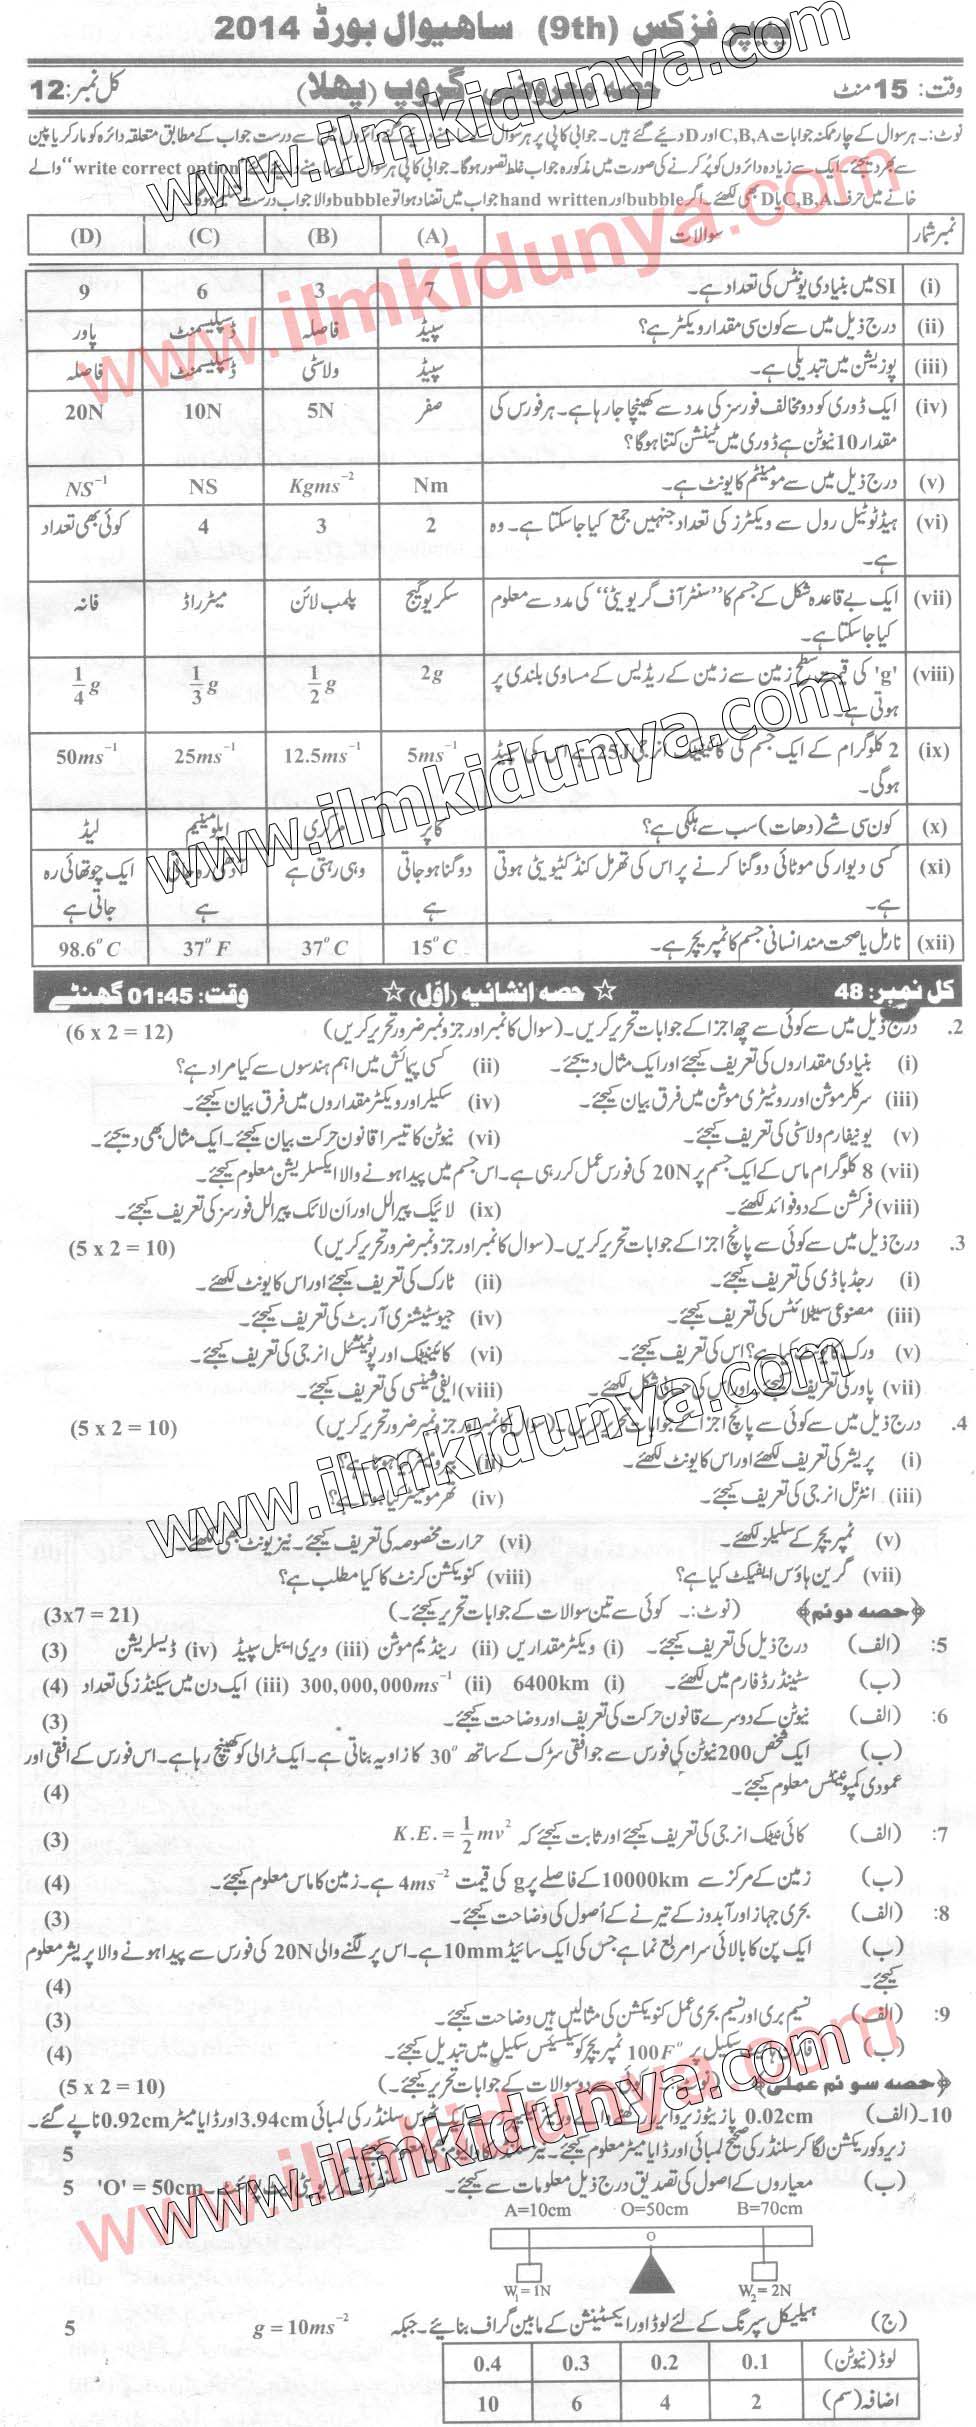 پیپر فزکس (9th) ساهیوال بورڈ 2014
وقت: 15 منٹ حصہ معروضی گروپ (پہلا) کل نمبر: 12
نوٹ:۔ ہر سوال کے چار ممکنہ جوابات C,B,A اور D دیئے گئے ہیں۔ جوابی کاپی پر ہر سوال کے سامنے دیئے گئے دائروں میں سے درست جواب کے مطابق متعلقہ دائرہ کو مارکر یا پین
سے بھر دیجئے۔ ایک سے زیادہ دائروں کو پُر کرنے کی صورت میں مذکورہ جواب غلط تصور ہوگا۔ جوابی کاپی پر ہر سوال کے سامنے دیئے گئے "write correct option" والے
خانے میں حرف C,B,A یا D بھی لکھئے۔ اگر bubble اور hand written جواب میں تضاد ہوا تو bubble والا جواب درست تسلیم ہوگا۔
نمبر شمار سوالات (A) (B) (C) (D)
(i) SI میں بنیادی یونٹس کی تعداد ہے۔ 7 3 6 9
(ii) درج ذیل میں سے کون سی مقدار ویکٹر ہے؟ سپیڈ فاصلہ ڈسپلیسمنٹ پاور
(iii) پوزیشن میں تبدیلی ہے۔ سپیڈ ولاسٹی ڈسپلیسمنٹ فاصلہ
(iv) ایک ڈوری کو دو مخالف فورسز کی مدد سے کھینچا جا رہا ہے۔ ہر فورس کی صفر 5N 10N 20N
مقدار 10 نیوٹن ہے ڈوری میں ٹینشن کتنا ہوگا؟
(v) درج ذیل میں سے مومینٹم کا یونٹ ہے۔ Nm Kgms⁻² NS NS⁻¹
(vi) ہیڈ ٹو ٹیل رول سے ویکٹرز کی تعداد جنہیں جمع کیا جا سکتا ہے۔ وہ 2 3 4 کوئی بھی تعداد
ہے۔
(vii) ایک بے قاعدہ شکل کے جسم کا "سنٹر آف گریویٹی" کی مدد سے معلوم سکریو گیج پلمب لائن میٹر راڈ فانہ
کیا جا سکتا ہے۔
(viii) 'g' کی قیمت سطح زمین سے زمین کے ریڈیس کے مساوی بلندی پر 2g 1/2 g 1/3 g 1/4 g
ہوتی ہے۔
(ix) 2 کلوگرام کے ایک جسم کی کائنیٹک انرجی 25J ہے اس کی سپیڈ 5ms⁻¹ 12.5ms⁻¹ 25ms⁻¹ 50ms⁻¹
ہوگی۔
(x) کون سی شے (دھات) سب سے ہلکی ہے؟ کاپر مرکری ایلومینیم لیڈ
(xi) کسی دیوار کی موٹائی دوگنا کرنے پر اس کی تھرمل کنڈکٹیویٹی ہوتی دوگنا ہو جاتی وہی رہتی ہے آدھی رہ جاتی ایک چوتھائی رہ
ہے۔ ہے ہے جاتی ہے
(xii) نارمل یا صحت مند انسانی جسم کا ٹمپریچر ہے۔ 15°C 37°C 37°F 98.6°C
کل نمبر: 48 ☆ حصہ انشائیہ (اوّل) ☆ وقت: 01:45 گھنٹے
2. درج ذیل میں سے کوئی سے چھ اجزا کے جوابات تحریر کریں۔ (سوال کا نمبر اور جزو نمبر ضرور تحریر کریں) (6 x 2 = 12)
(i) بنیادی مقداروں کی تعریف کیجئے اور ایک مثال دیجئے۔ (ii) کسی پیمائش میں اہم ہندسوں سے کیا مراد ہے؟
(iii) سرکلر موشن اور روٹیٹری موشن میں فرق بیان کیجئے۔ (iv) سکیلر اور ویکٹر مقداروں میں فرق بیان کیجئے۔
(v) یونیفارم ولاسٹی کی تعریف کیجئے۔ (vi) نیوٹن کا تیسرا قانون حرکت بیان کیجئے۔ ایک مثال بھی دیجئے۔
(vii) 8 کلوگرام ماس کے ایک جسم پر 20N کی فورس عمل کر رہی ہے۔ اس جسم میں پیدا ہونے والا ایکسلریشن معلوم کیجئے۔
(viii) فرکشن کے دو فوائد لکھئے۔ (ix) لائیک پیرالل اور اَن لائک پیرالل فورسز کی تعریف کیجئے۔
3. درج ذیل میں سے کوئی سے پانچ اجزا کے جوابات تحریر کریں۔ (سوال کا نمبر اور جزو نمبر ضرور تحریر کریں) (5 x 2 = 10)
(i) رجڈ باڈی کی تعریف کیجئے۔ (ii) ٹارک کی تعریف کیجئے اور اس کا یونٹ لکھئے۔
(iii) مصنوعی سیٹلائٹس کی تعریف کیجئے۔ (iv) جیو سٹیشنری آربٹ کی تعریف کیجئے۔
(v) ورک کا یونٹ کیا ہے؟ اس کی تعریف کیجئے۔ (vi) کائنیٹک اور پوٹینشل انرجی کی تعریف کیجئے۔
(vii) پاور کی تعریف کیجئے۔ اور اس کی حسابی شکل لکھئے۔ (viii) ایفی شینسی کی تعریف کیجئے۔
4. درج ذیل میں سے کوئی سے پانچ اجزا کے جوابات تحریر کریں۔ (سوال کا نمبر اور جزو نمبر ضرور تحریر کریں) (5 x 2 = 10)
(i) پریشر کی تعریف لکھئے اور اس کا یونٹ لکھئے۔ (ii) بیرومیٹر کیا ہوتا ہے؟
(iii) انٹرنل انرجی کی تعریف کیجئے۔ (iv) تھرمومیٹر کیا ہوتا ہے؟
(v) ٹمپریچر کے سکیلز لکھئے۔ (vi) حرارت مخصوصہ کی تعریف کیجئے۔ نیز یونٹ بھی لکھئے۔
(vii) گرین ہاؤس ایفیکٹ کیا ہے؟ (viii) کنویکشن کرنٹ کا کیا مطلب ہے؟
﴿حصہ دوئم﴾ (نوٹ:۔ کوئی سے تین سوالات کے جوابات تحریر کیجئے۔) (3x7 = 21)
5: (الف) درج ذیل کی تعریف کیجئے۔ (i) ویکٹر مقداریں (ii) رینڈیم موشن (iii) ویری ایبل سپیڈ (iv) ڈیسلریشن (3)
(ب) سٹینڈرڈ فارم میں لکھئے۔ (i) 6400km (ii) 300,000,000ms⁻¹ (iii) ایک دن میں سیکنڈز کی تعداد (4)
6: (الف) نیوٹن کے دوسرے قانون حرکت کی تعریف اور وضاحت کیجئے۔ (3)
(ب) ایک شخص 200 نیوٹن کی فورس سے جو افقی سڑک کے ساتھ 30° کا زاویہ بناتی ہے۔ ایک ٹرالی کو کھینچ رہا ہے۔ اس فورس کے افقی اور
عمودی کمپونینٹس معلوم کیجئے۔ (4)
7: (الف) کائی نیٹک انرجی کی تعریف کیجئے اور ثابت کیجئے کہ K.E. = 1/2 mv² (3)
(ب) زمین کے مرکز سے 10000km کے فاصلے پر g کی قیمت 4ms⁻² ہے۔ زمین کا ماس معلوم کیجئے۔ (4)
8: (الف) بحری جہاز اور آبدوز کے تیرنے کے اُصول کی وضاحت کیجئے۔ (3)
(ب) ایک پن کا بالائی سرا مربع نما ہے جس کی ایک سائیڈ 10mm ہے۔ اس پر لگنے والی 20N کی فورس سے پیدا ہونے والا پریشر معلوم
کیجئے۔ (4)
9: (الف) نسیم بری اور نسیم بحری عمل کنویکشن کی مثالیں ہیں وضاحت کیجئے۔ (3)
(ب) فارن ہائیٹ سکیل پر 100F° ٹمپریچر کو سیلسیئس سکیل میں تبدیل کیجئے۔ (4)
﴿حصہ سوئم عملی﴾ (نوٹ:۔ کوئی سے دو سوالات کے جوابات تحریر کیجئے۔) (5 x 2 = 10)
10۔ (الف) 0.02cm پازیٹو زیرو ایرر رکھنے والے ورنیئر کیلیپرز سے ایک ٹھوس سلنڈر کی لمبائی 3.94cm اور ڈایا میٹر 0.92cm ناپے گئے۔
زیرو کوریکشن لگا کر سلنڈر کی صحیح لمبائی اور ڈایا میٹر معلوم کیجئے۔ نیز سلنڈر کا والیوم بھی معلوم کیجئے۔ 5
(ب) معیاروں کے اصول کی تصدیق درج ذیل معلومات سے کیجئے۔ سنٹر آف گریویٹی ایٹ پوائنٹ۔ 'O' = 50cm 5
A=10cm O=50cm B=70cm
O
W₁ = 1N W₂ = 2N
(ج) ہیلیکل سپرنگ کے لئے لوڈ اور ایکسٹینشن کے مابین گراف بنائیے۔ جبکہ g = 10ms⁻² 5
لوڈ (نیوٹن) 0.1 0.2 0.3 0.4
اضافہ (سم) 2 4 6 10
www.ilmkidunya.com
www.ilmkidunya.com
www.ilmkidunya.com
www.ilmkidunya.com
www.ilmkidunya.com
www.ilmkidunya.com